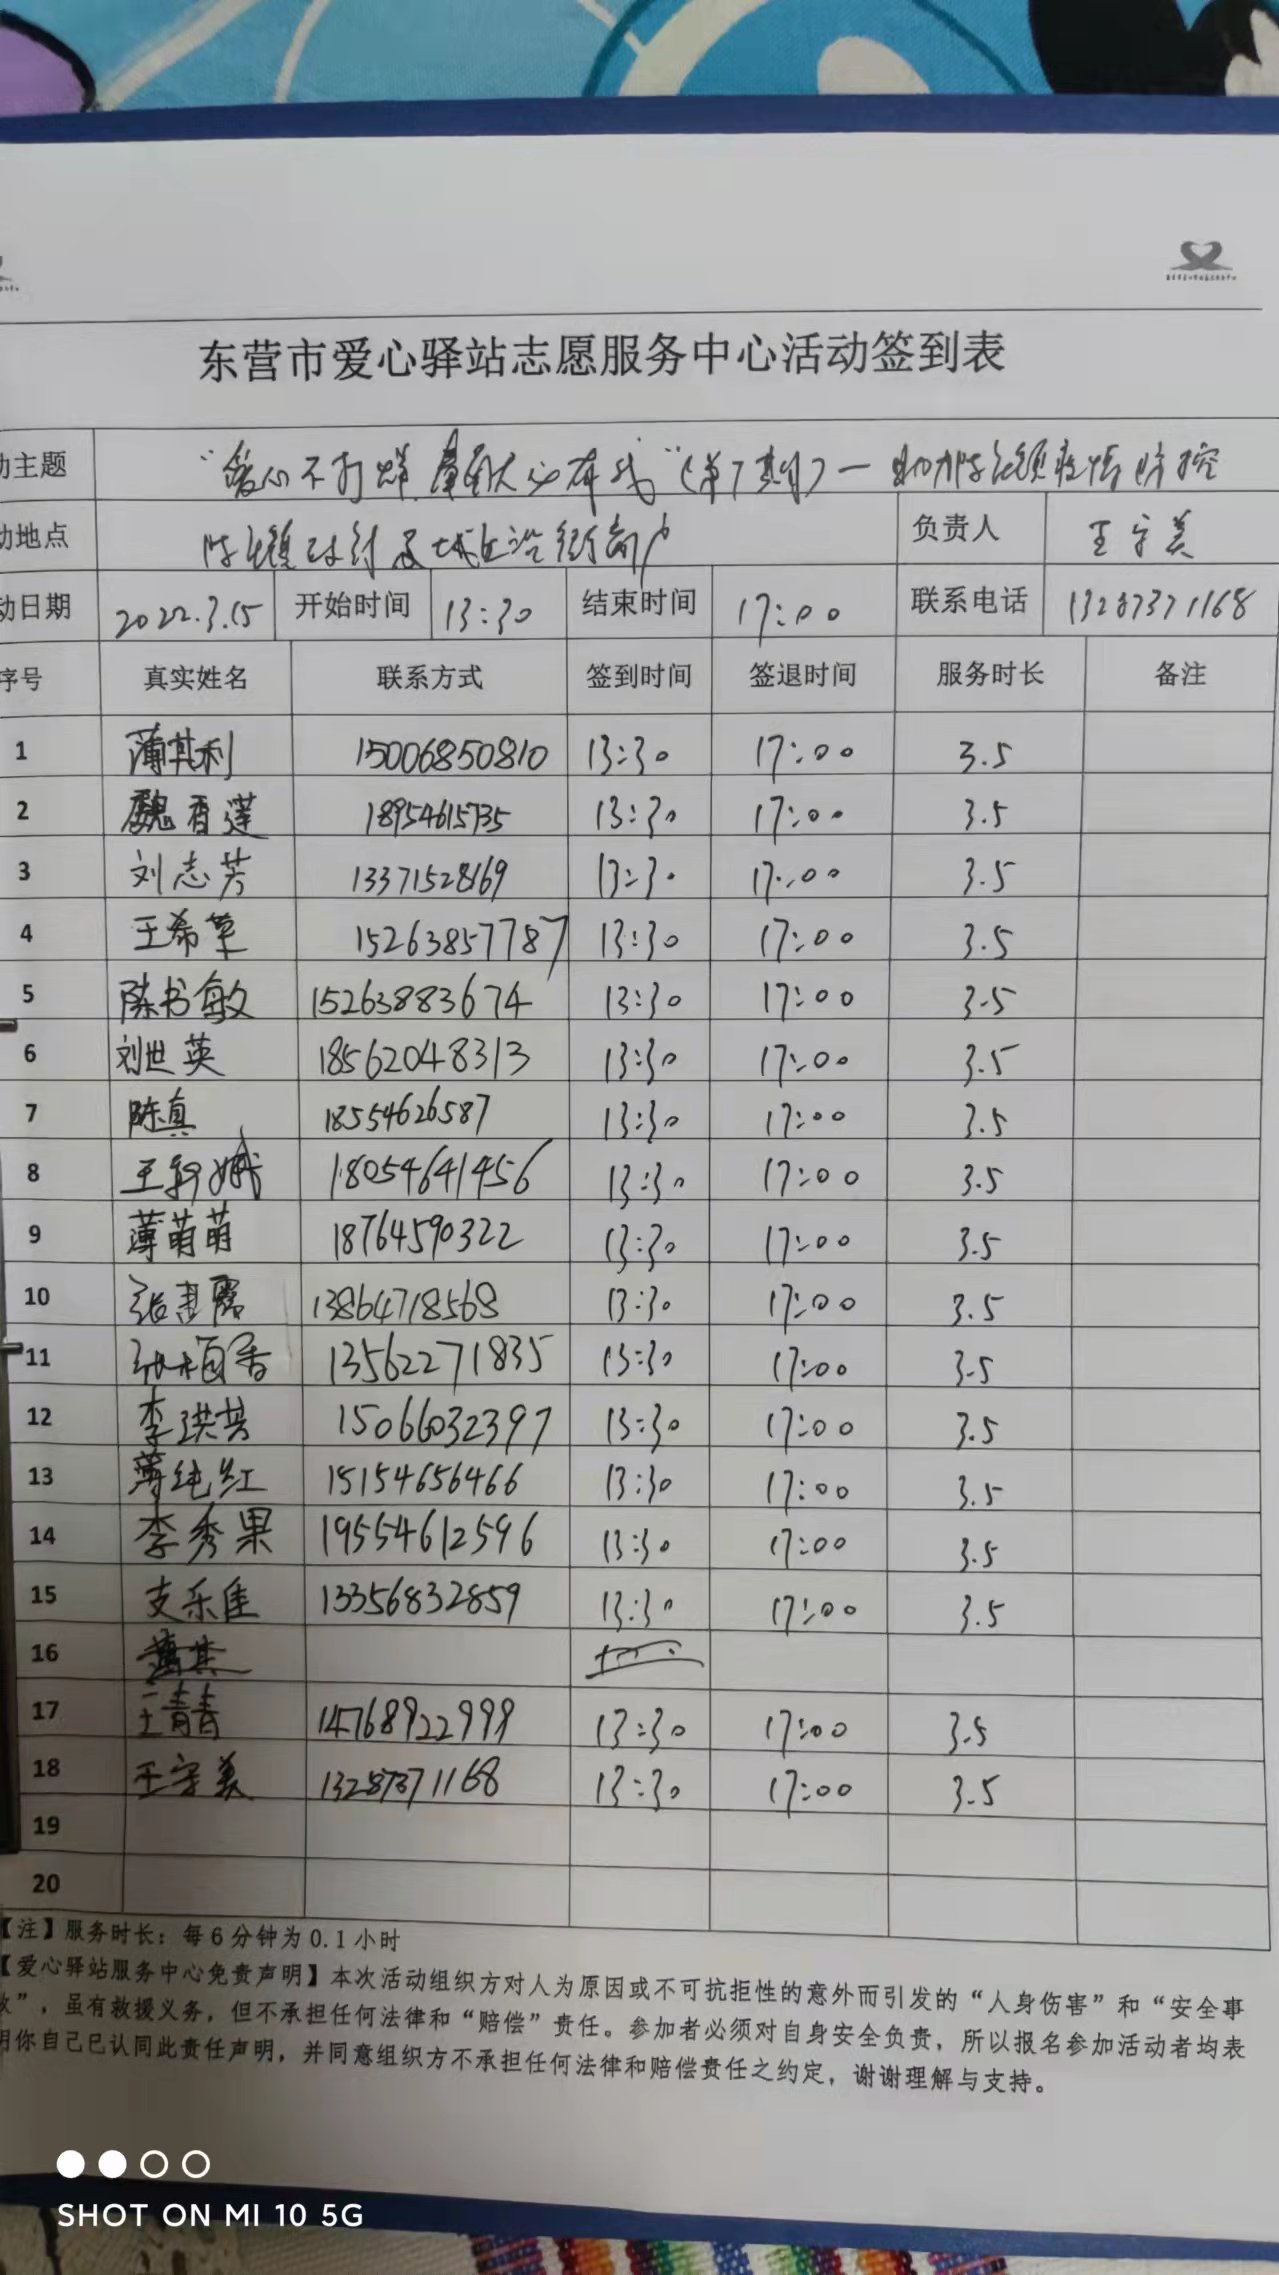 东营市爱心驿站志愿服务中心活动签到表
动主题 "爱心不打烊 最有我"(第7期)一助力陈庄镇疫情防控
动地点 陈庄镇 村及城区沿街商户 负责人 王守美
动日期 2022.3.15 开始时间 13:30 结束时间 17:00 联系电话 13287371168
序号 真实姓名 联系方式 签到时间 签退时间 服务时长 备注
1 薄其利 15006850810 13:30 17:00 3.5
2 魏香莲 18954615735 13:30 17:00 3.5
3 刘志芳 13371528169 13:30 17:00 3.5
4 王希革 15263857787 13:30 17:00 3.5
5 陈书敏 15263883674 13:30 17:00 3.5
6 刘世英 18562048313 13:30 17:00 3.5
7 陈真 18554626587 13:30 17:00 3.5
8 王新娥 18054641456 13:30 17:00 3.5
9 薄萌萌 18764590322 13:30 17:00 3.5
10 张惠霞 13864718568 13:30 17:00 3.5
11 张香 13562271835 13:30 17:00 3.5
12 李洪芸 15066032397 13:30 17:00 3.5
13 薄纯红 15154656466 13:30 17:00 3.5
14 李秀果 19554612596 13:30 17:00 3.5
15 支乐佳 13356832859 13:30 17:00 3.5
16 薄其
17 王青青 14768922999 13:30 17:00 3.5
18 王守美 13287371168 13:30 17:00 3.5
19
20
【注】服务时长：每6分钟为0.1小时
【爱心驿站服务中心免责声明】本次活动组织方对人为原因或不可抗拒性的意外而引发的“人身伤害”和“安全事
故”，虽有救援义务，但不承担任何法律和“赔偿”责任。参加者必须对自身安全负责，所以报名参加活动者均表
明你自己已认同此责任声明，并同意组织方不承担任何法律和赔偿责任之约定，谢谢理解与支持。
SHOT ON MI 10 5G